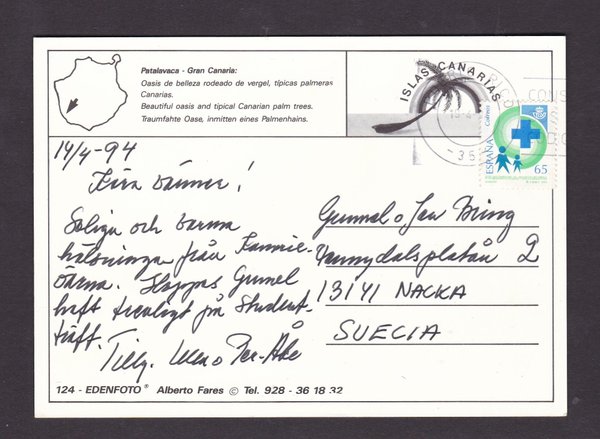 Patalavaca - Gran Canaria:
Oasis de belleza rodeado de vergel, típicas palmeras
Canarias.
Beautiful oasis and tipical Canarian palm trees.
Traumfahte Oase, inmitten eines Palmenhains.
ISLAS CANARIAS
CONS
ESPAÑA
Correos
65
14/4-94
Kära vänner!
Soliga och varma
hälsningar från
Hoppas Gunnel
haft trevligt på student-
träff.
o Per-Åke
Gunnel o Jan
2
13141 NACKA
SUECIA
124 - EDENFOTO® Alberto Fares © Tel. 928 - 36 18 32